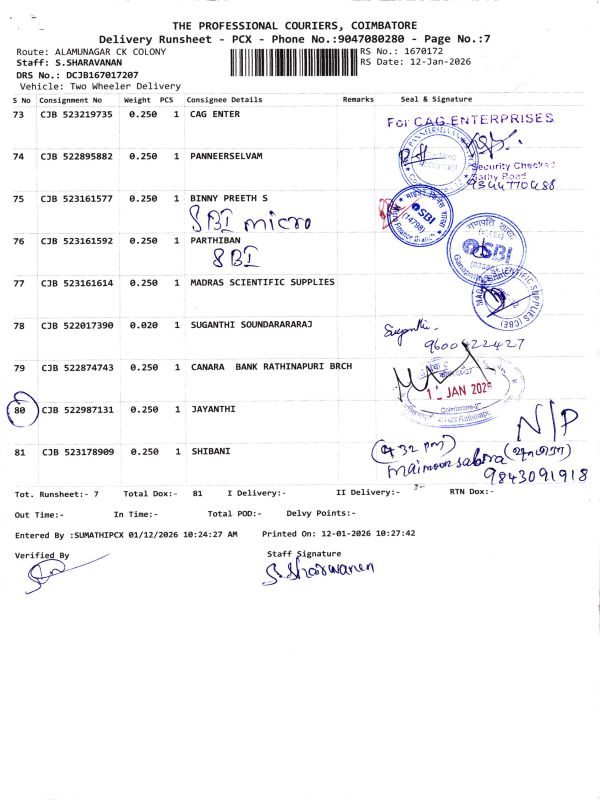 THE PROFESSIONAL COURIERS, COIMBATORE
Delivery Runsheet - PCX - Phone No.:9047080280 - Page No.:7
Route: ALAMUNAGAR CK COLONY
RS No.: 1670172
Staff: S.SHARAVANAN
RS Date: 12-Jan-2026
DRS No.: DCJB167017207
Vehicle: Two Wheeler Delivery
S No Consignment No Weight PCS Consignee Details Remarks Seal & Signature
73 CJB 523219735 0.250 1 CAG ENTER
For CAG ENTERPRISES
74 CJB 522895882 0.250 1 PANNEERSELVAM
PANNEERSELVAM
Security Checked
75 CJB 523161577 0.250 1 BINNY PREETH S
SBI micro
SBI
(14798)
76 CJB 523161592 0.250 1 PARTHIBAN
SBI
SBI
77 CJB 523161614 0.250 1 MADRAS SCIENTIFIC SUPPLIES
78 CJB 522017390 0.020 1 SUGANTHI SOUNDARARARAJ
Suganthi.
79 CJB 522874743 0.250 1 CANARA BANK RATHINAPURI BRCH
JAN 2026
80 CJB 522987131 0.250 1 JAYANTHI
N/P
81 CJB 523178909 0.250 1 SHIBANI
(4 32 pm)
9843091918
Tot. Runsheet:- 7 Total Dox:- 81 I Delivery:- II Delivery:- RTN Dox:-
Out Time:- In Time:- Total POD:- Delvy Points:-
Entered By :SUMATHIPCX 01/12/2026 10:24:27 AM Printed On: 12-01-2026 10:27:42
Verified By Staff Signature
S. Sharavanan